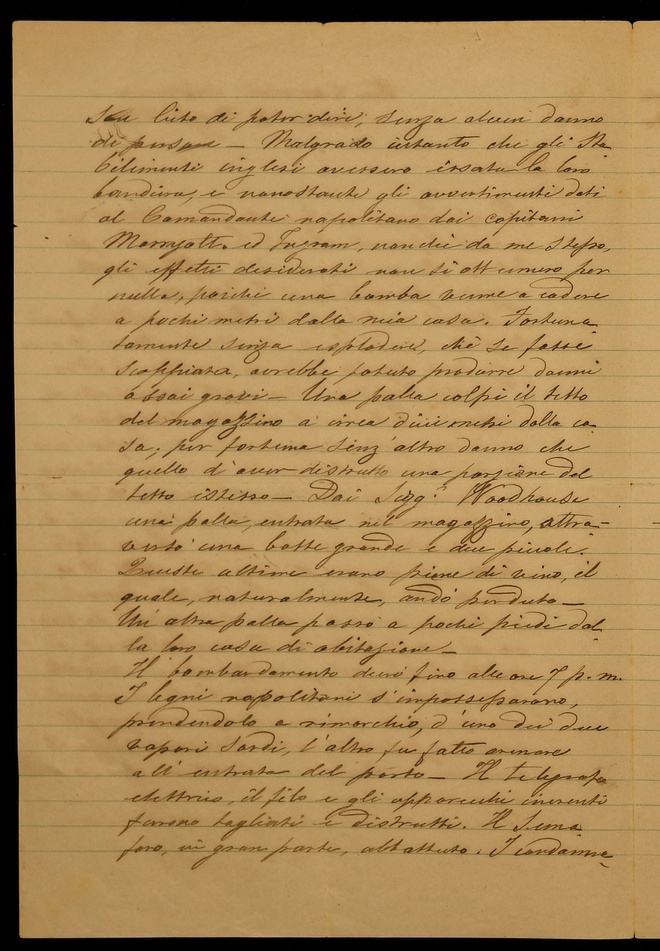 son lieto di poter dire, senza alcun danno
di persone — Malgrado intanto che gli Sta
bilimenti inglesi avessero issata la loro
bandiera, e nonostante gli avvertimenti dati
al Comandante napolitano dai capitani
Marryatt ed Ingram, nonchè da me stesso,
gli effetti desiderati non si ottennero per
nulla, poichè una bomba venne a cadere
a pochi metri dalla mia casa. Fortuna
tamente senza esplodere, chè se fosse
scoppiata, avrebbe potuto produrre danni
assai gravi — Una palla colpì il tetto
del magazzino a circa dieci metri dalla ca
sa, per fortuna senz'altro danno che
quello d'aver distrutto una porzione del
tetto istesso — Dai Sigg.ri Woodhouse
una palla, entrata nel magazzino, attra-
versò una botte grande e due piccole.
Queste ultime erano piene di vino, il
quale, naturalmente, andò perduto —
Un'altra palla passò a pochi piedi dal
la loro casa di abitazione —
Il bombardamento durò fino alle ore 7 p.m.
I legni napolitani s'impossessarono,
prendendolo a rimorchio, d'uno dei due
vapori Sardi, l'altro fu fatto arenare
all'entrata del porto — Il telegrafo
elettrico, il filo e gli apparecchi inerenti
furono tagliati e distrutti. Il Sema
foro, in gran parte, abbattuto. I condanna